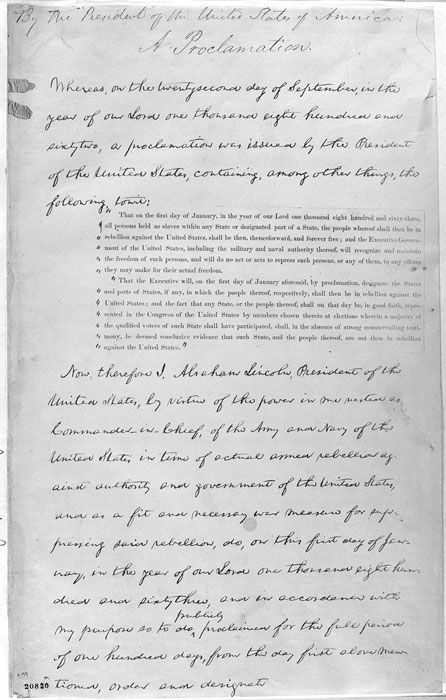 By the President of the United States of America:
A Proclamation.
Whereas, on the twentysecond day of September, in the
year of our Lord one thousand eight hundred and
sixtytwo, a proclamation was issued by the President
of the United States, containing, among other things, the
following, towit:
" That on the first day of January, in the year of our Lord one thousand eight hundred and sixty-three,
" all persons held as slaves within any State or designated part of a State, the people whereof shall then be in
" rebellion against the United States, shall be then, thenceforward, and forever free; and the Executive Govern-
" ment of the United States, including the military and naval authority thereof, will recognize and maintain
" the freedom of such persons, and will do no act or acts to repress such persons, or any of them, in any efforts
" they may make for their actual freedom.
" That the Executive will, on the first day of January aforesaid, by proclamation, designate the States
" and parts of States, if any, in which the people thereof, respectively, shall then be in rebellion against the
" United States; and the fact that any State, or the people thereof, shall on that day be, in good faith, repre-
" sented in the Congress of the United States by members chosen thereto at elections wherein a majority of
" the qualified voters of such State shall have participated, shall, in the absence of strong countervailing testi-
" mony, be deemed conclusive evidence that such State, and the people thereof, are not then in rebellion
" against the United States."
Now, therefore I, Abraham Lincoln, President of the
United States, by virtue of the power in me vested as
Commander-in-Chief, of the Army and Navy of the
United States in time of actual armed rebellion ag-
ainst authority and government of the United States,
and as a fit and necessary war measure for sup-
pressing said rebellion, do, on this first day of Jan-
uary, in the year of our Lord one thousand eight hun-
dred and sixty three, and in accordance with
my purpose so to do, publicly proclaimed for the full period
of one hundred days, from the day first above men-
tioned, order and designate
20820